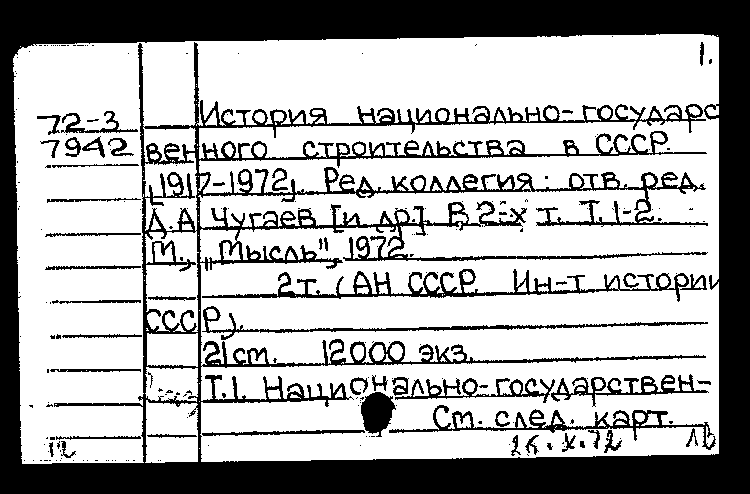 1.
72-3 История национально-государс
7942 венного строительства в СССР.
(1917-1972). Ред. коллегия: отв. ред.
Д.А. Чугаев [и др.]. В 2-х т. Т. 1-2.
М., „Мысль", 1972.
2т. (АН СССР. Ин-т истории
СССР).
21 см. 12000 экз.
Т.1. Национально-государствен-
См. след. карт.
26.X.72